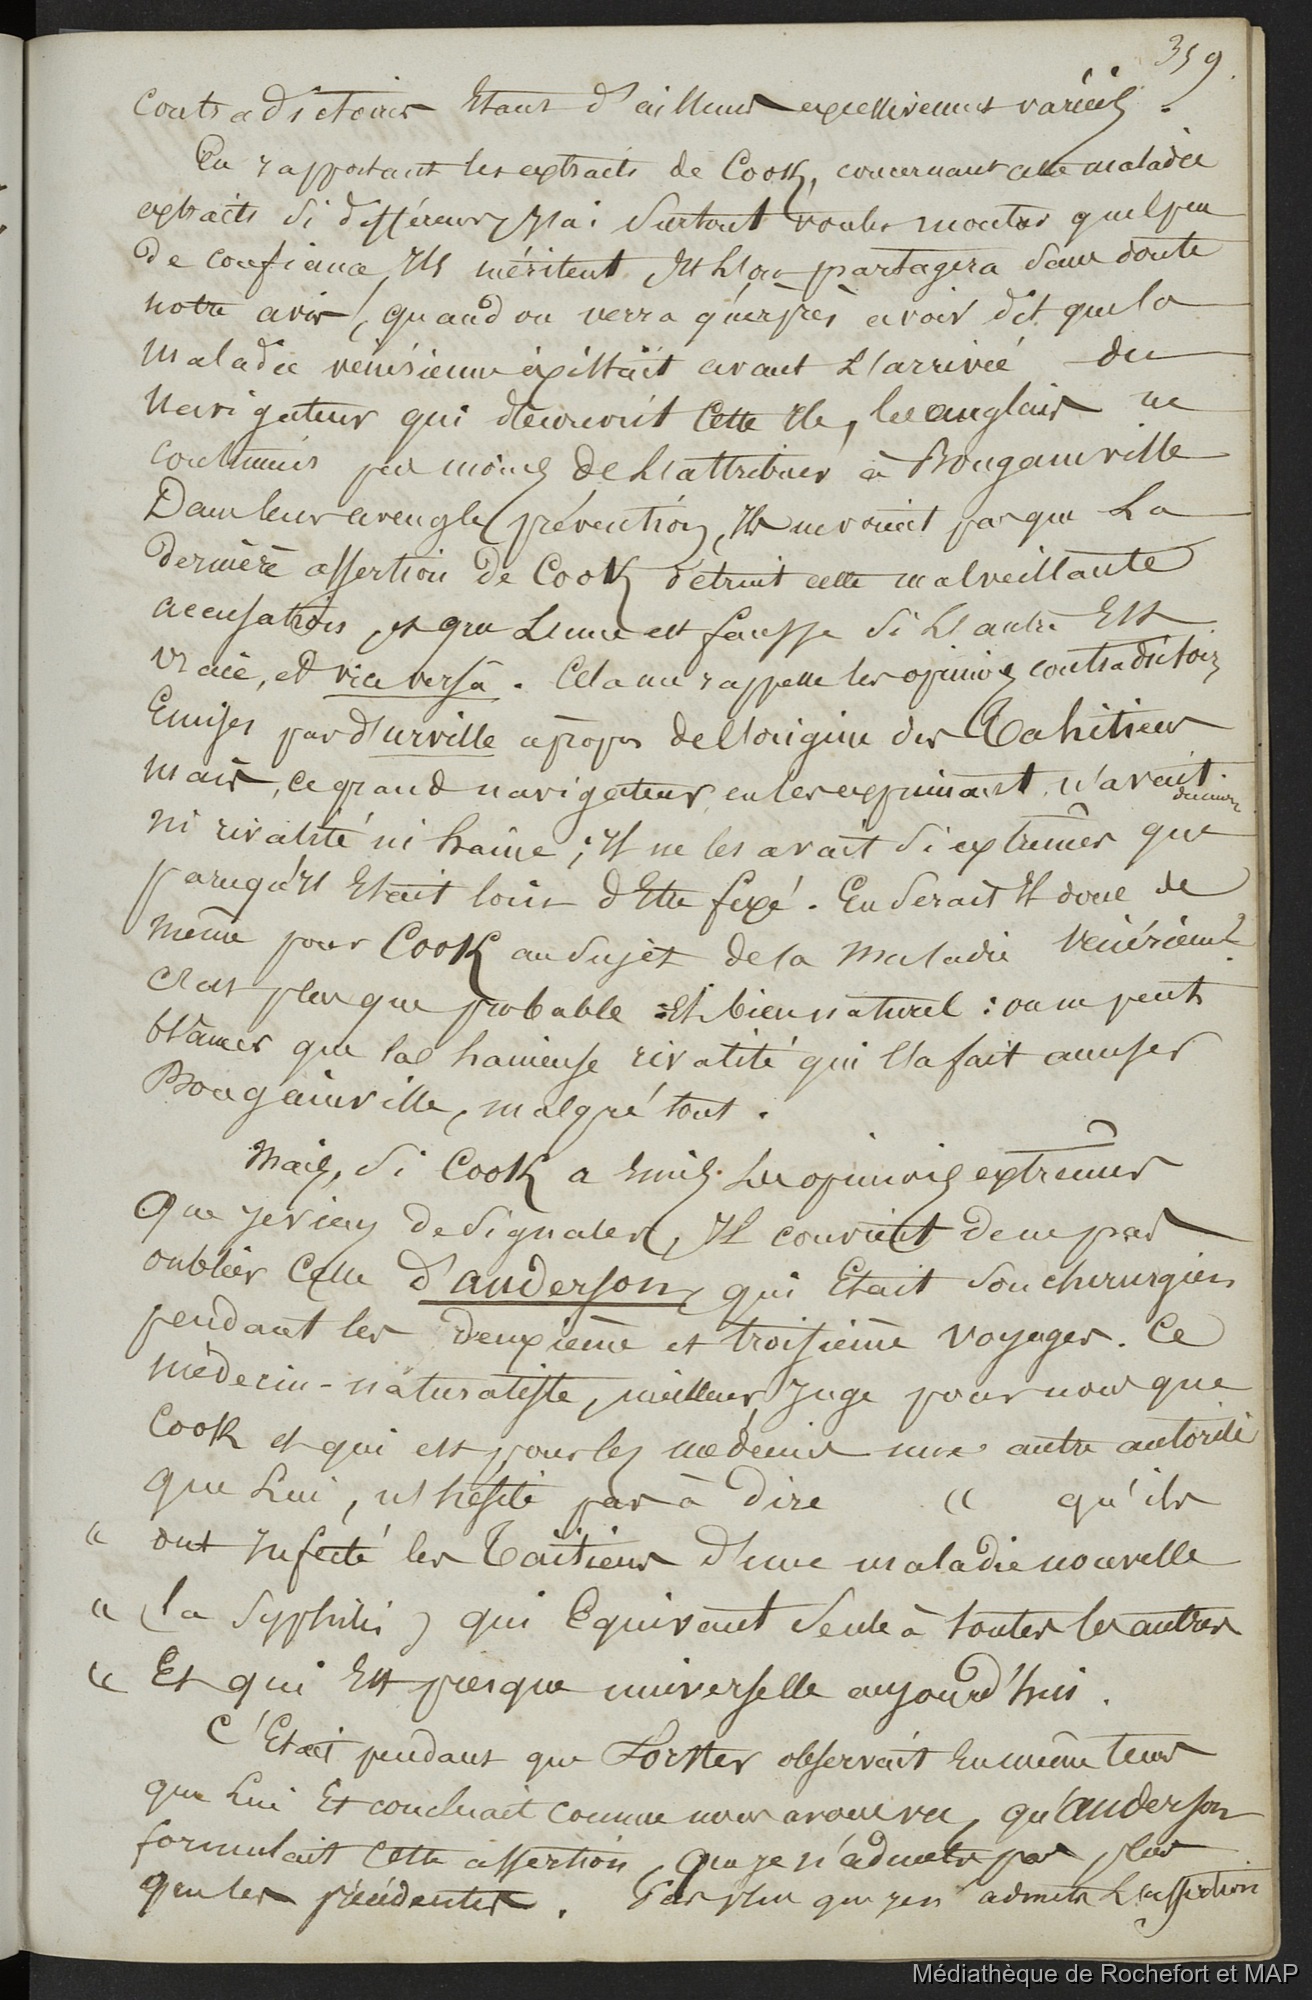 359.
contradictoires étant d'ailleurs excessivement variés.
En rapportant les extraits de Cook, concernant cette maladie
extraits si différents, j'ai surtout voulu montrer quel peu
de confiance ils méritent et l'on partagera sans doute
notre avis, quand on verra qu'après avoir dit que la
maladie vénérienne existait avant l'arrivée du
navigateur qui découvrit cette île, les anglais ne
continuèr pas moins de l'attribuer à Bougainville
Dans leur aveugle prévention, ils ne voient pas que la
dernière assertion de Cook détruit cette malveillante
accusation, et que l'une est fausse si l'autre est
vraie, et vice versâ. Cela me rappelle les opinions contradictoires
émises par d'urville àpropos de l'origine des Tahitiens
mais, ce grand navigateur, en les exprimant, n'avait
ni rivalité ni haine ; il ne les avait si extrêmes que
parcequ'il était loin d'être fixé. En serait il donc de
même pour Cook au sujet de la maladie vénérienne ?
c'est plus que probable et bien naturel : on ne peut
blâmer que la haineuse rivalité qui l'a fait accuser
Bougainville, malgré tout.
Mais, si Cook a émis les opinions extrêmes
que je viens de signaler, il convient de ne pas
oublier celle d'anderson, qui était son chirurgien
pendant les deuxième et troisième voyages. Ce
médecin-naturaliste, meilleur juge pour nous que
Cook et qui est pour les médecins une autre autorité
que lui, n'hésite pas à dire " qu'ils
" ont infecté les Taïtiens d'une maladie nouvelle
" (la syphilis) qui équivaut seule à toutes les autres
" et qui est presque universelle aujourd'hui.
C'était pendant que Forster observait en même tems
que lui et concluait comme nous avons vu, qu'anderson
formulait cette assertion, que je n'admets pas plus
que les précédentes. Pas plus que je n'admets l'assertion